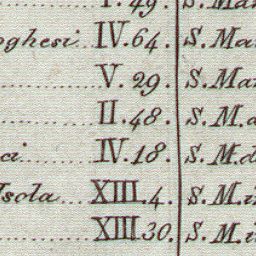 I. 49. S. Mar
oghesi IV. 64. S. Ma
V. 29. S. Mar
II. 48. S. M. a
ai IV. 18. S. M. d
Isola XIII. 4. S. M. i
XIII. 30. S. M. i